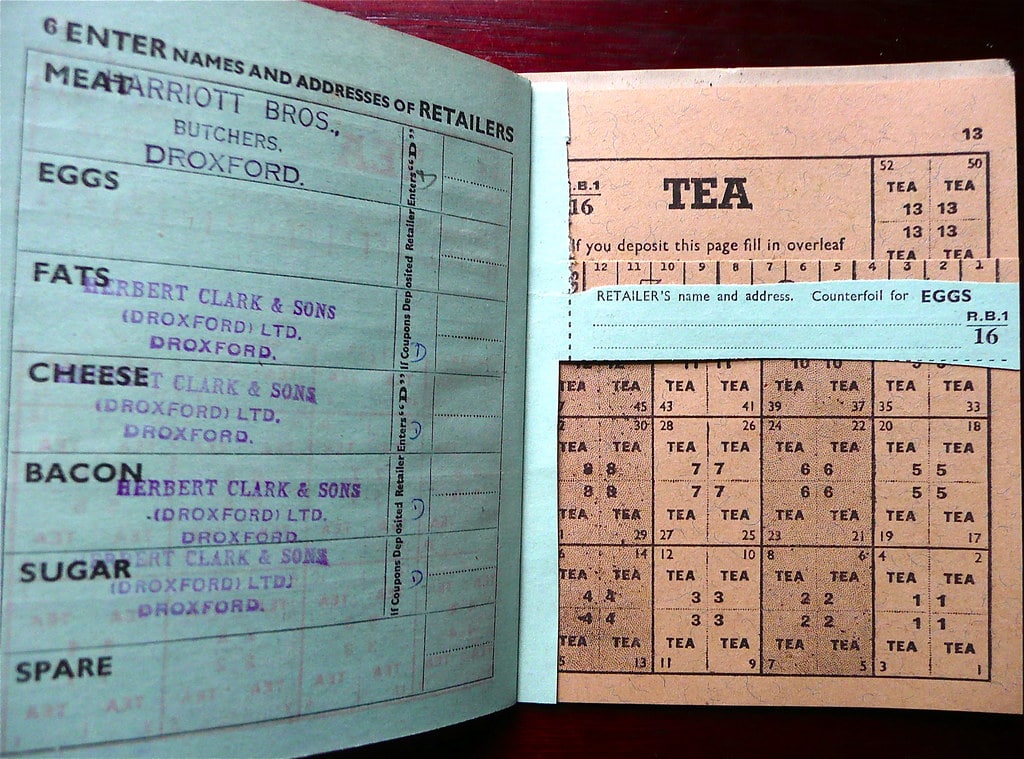 6 ENTER NAMES AND ADDRESSES OF RETAILERS
MEAT HARRIOTT BROS.,
BUTCHERS.
DROXFORD.
EGGS
FATS
HERBERT CLARK & SONS
(DROXFORD) LTD.
DROXFORD.
CHEESE CLARK & SONS
(DROXFORD) LTD.
DROXFORD.
BACON
HERBERT CLARK & SONS
(DROXFORD) LTD.
DROXFORD
SUGAR CLARK & SONS
(DROXFORD) LTD
DROXFORD.
SPARE
If Coupons Deposited Retailer Enters "D"
D
D
If Coupons Deposited Retailer Enters "D"
D
D
D
13
R.B.1
16
TEA
If you deposit this page fill in overleaf
52 50
TEA TEA
13 13
13 13
TEA TEA
12 11 10 9 8 7 6 5 4 3 2 1
RETAILER'S name and address. Counterfoil for EGGS
R.B.1
16
TEA TEA TEA TEA TEA TEA TEA TEA
45 43 41 39 37 35 33
30 28 26 24 22 20 18
TEA TEA TEA TEA TEA TEA TEA TEA
8 8 7 7 6 6 5 5
8 8 7 7 6 6 5 5
TEA TEA TEA TEA TEA TEA TEA TEA
29 27 25 23 21 19 17
14 12 10 8 6 4 2
TEA TEA TEA TEA TEA TEA TEA TEA
4 4 3 3 2 2 1 1
4 4 3 3 2 2 1 1
TEA TEA TEA TEA TEA TEA TEA TEA
13 11 9 7 5 3 1